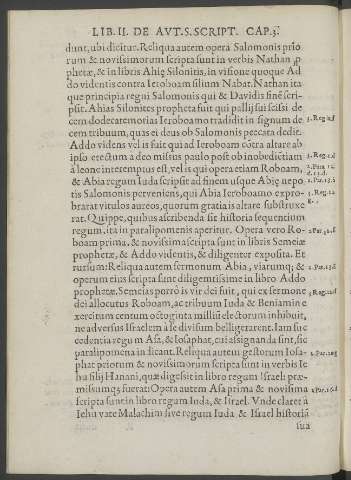 LIB. II. DE AVT. S. SCRIPT. CAP. 3.
dunt, ubi dicitur. Reliqua autem opera Salomonis prio
rum & novissimorum scripta sunt in verbis Nathan, p
phetæ, & in libris Ahię Silonitis, in visione quoque Ad
do videntis contra Ieroboam filium Nabat. Nathan ita
que principia regni Salomonis qui & Davidis finē scri-
psit. Ahias Silonites propheta fuit qui pallij sui scissi de
cem dodecatemorias Ieroboamo tradidit in signum de
cem tribuum, quas ei deus ob Salomonis peccata dedit.
Addo videns vel is fuit qui ad Ieroboam cōtra altare ab
ipso erectum a deo missus paulo post ob inobediētiam
à leone interemptus est, vel is qui opera etiam Roboam,
& Abia regum Iuda scripsit ad finem usque Abię nepo
tis Salomonis perveniens, qui Abia Ieroboamo expro-
brarat vitulos aureos, quorum gratia is altare substruxe
rat. Quippe, quibus ascribenda sit historia sequentium
regum, ita in paralipomenis aperitur. Opera vero Ro-
boam prima, & novissima scripta sunt in libris Semeiæ
prophetæ, & Addo videntis, & diligenter exposita. Et
rursum: Reliqua autem sermonum Abia, viarumq; &
operum eius scripta sunt diligentissime in libro Addo
prophetæ. Semeias porrò is vir dei fuit, qui ex sermone
dei allocutus Roboam, ac tribuum Iuda & Beniamin e
xercitum centum octoginta milliū electorum inhibuit,
ne adversus Israelem à se divisum belligerarent. Iam suc
cedentia regum Asa, & Iosaphat, cui assignanda sint, sic
paralipomena indicant. Reliqua autem gestorum Iosa-
phat priorum & novissimorum scripta sunt in verbis Ie
hu filij Hanani, quæ digessit in librum regum Israel: præ-
missumq; fuerat: Opera autem Asa prima & novissima
scripta sunt in libro regum Iuda, & Israel. Unde claret à
Iehu vate Malachim sive regum Iuda & Israel historiā
sua